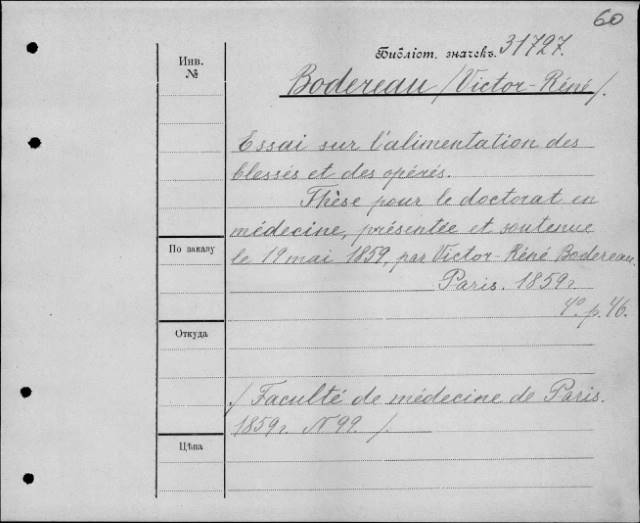 60
Библіот. значекъ. 31727.
Инв.
№
Bodereau /Victor-Réné/.
Essai sur l'alimentation des
blessés et des opérés.
Thèse pour le doctorat en
médecine, présentée et soutenue
По заказу
le 19 mai 1859, par Victor-Réné Bodereau.
Paris. 1859г.
4º. p. 46.
Откуда
/Faculté de médecine de Paris.
1859г. N 99. /.
Цѣна